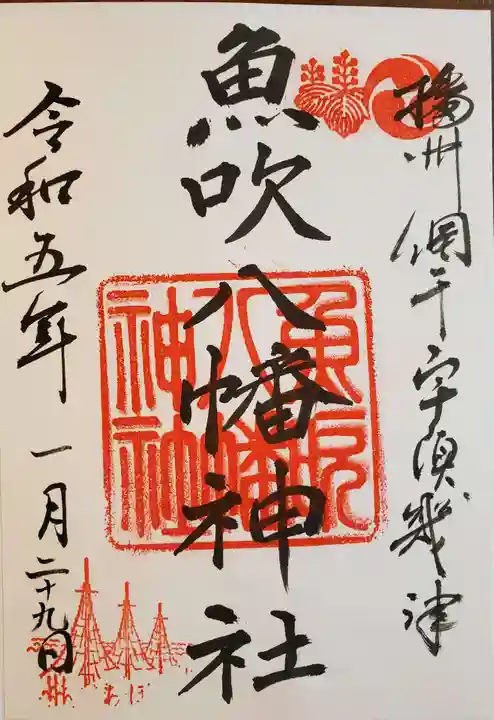 播州網干宇須幾津
魚吹八幡神社
魚吹八幡神社
令和五年一月二十九日